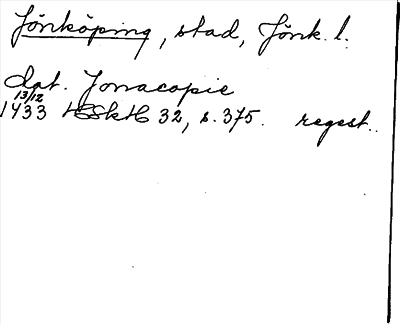 Jönköping, stad, Jönk. l.
dat. Jonacopie
13/12
1433 HSkH 32, s. 375. regest.